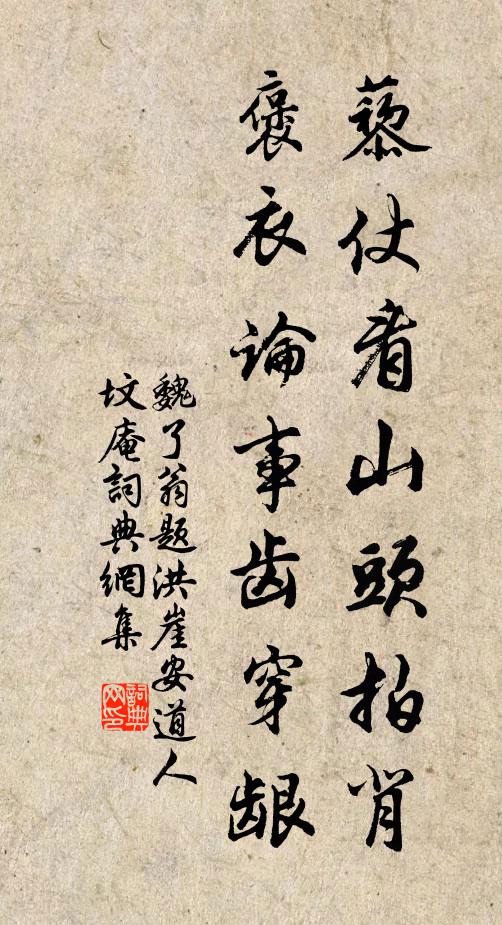 藜仗看山頭拍肯
褒衣論事齿穿龈
魏了翁题洪崖安道人
坟庵詞典網集
詞典网印